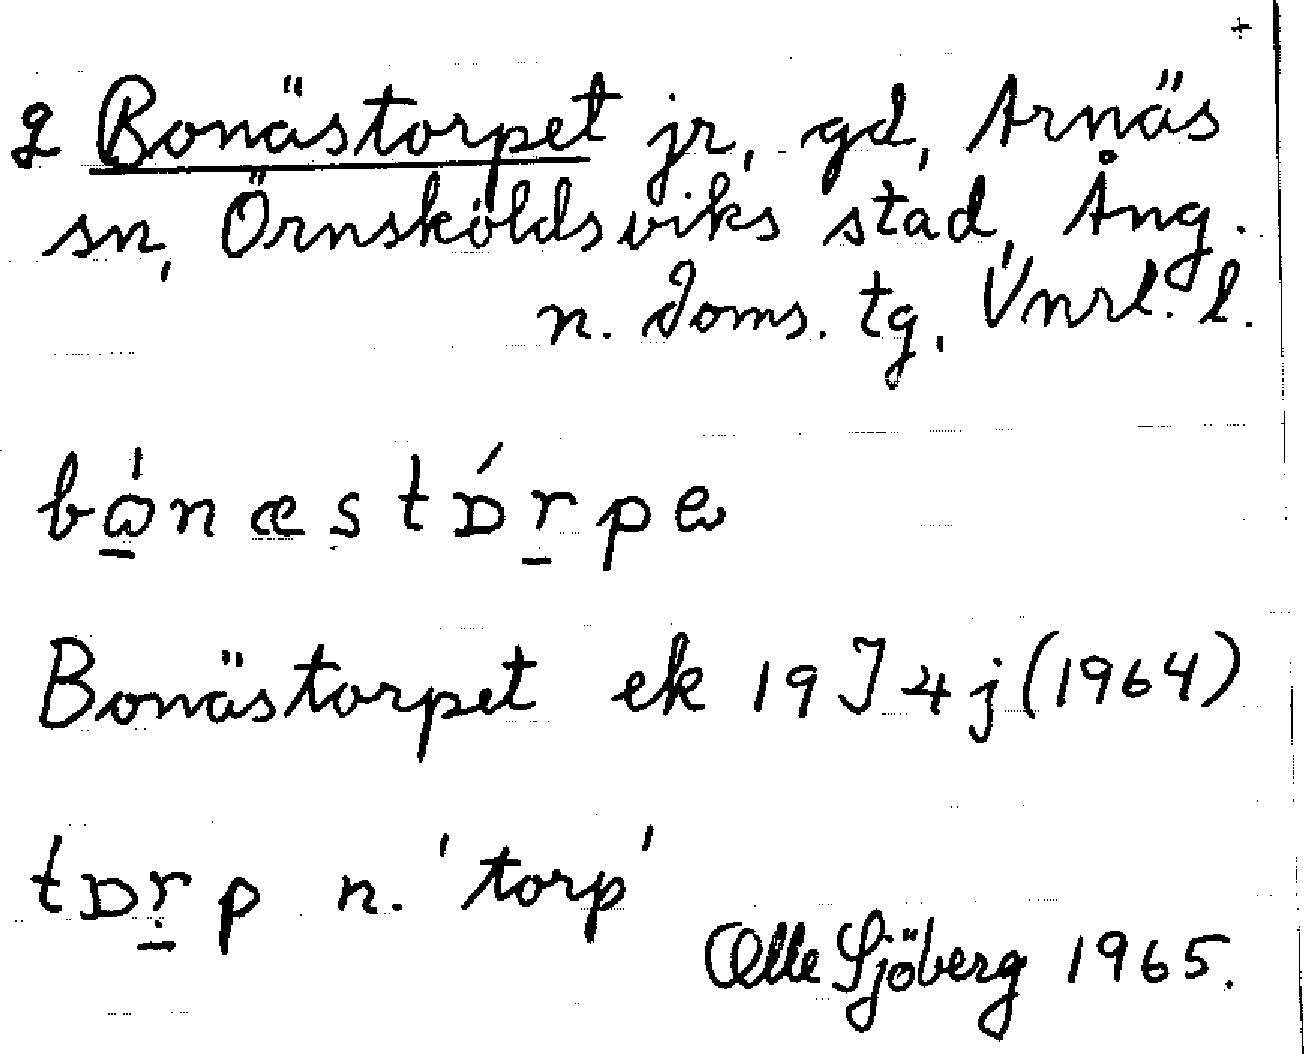 +
g Bonästorpet jr, gd, Arnäs
sn, Örnsköldsviks stad, Ång.
n. doms. tg, Vnrl. l.
Bonästorpet ek 19J4j (1964)
n. 'torp'
Olle Sjöberg 1965.